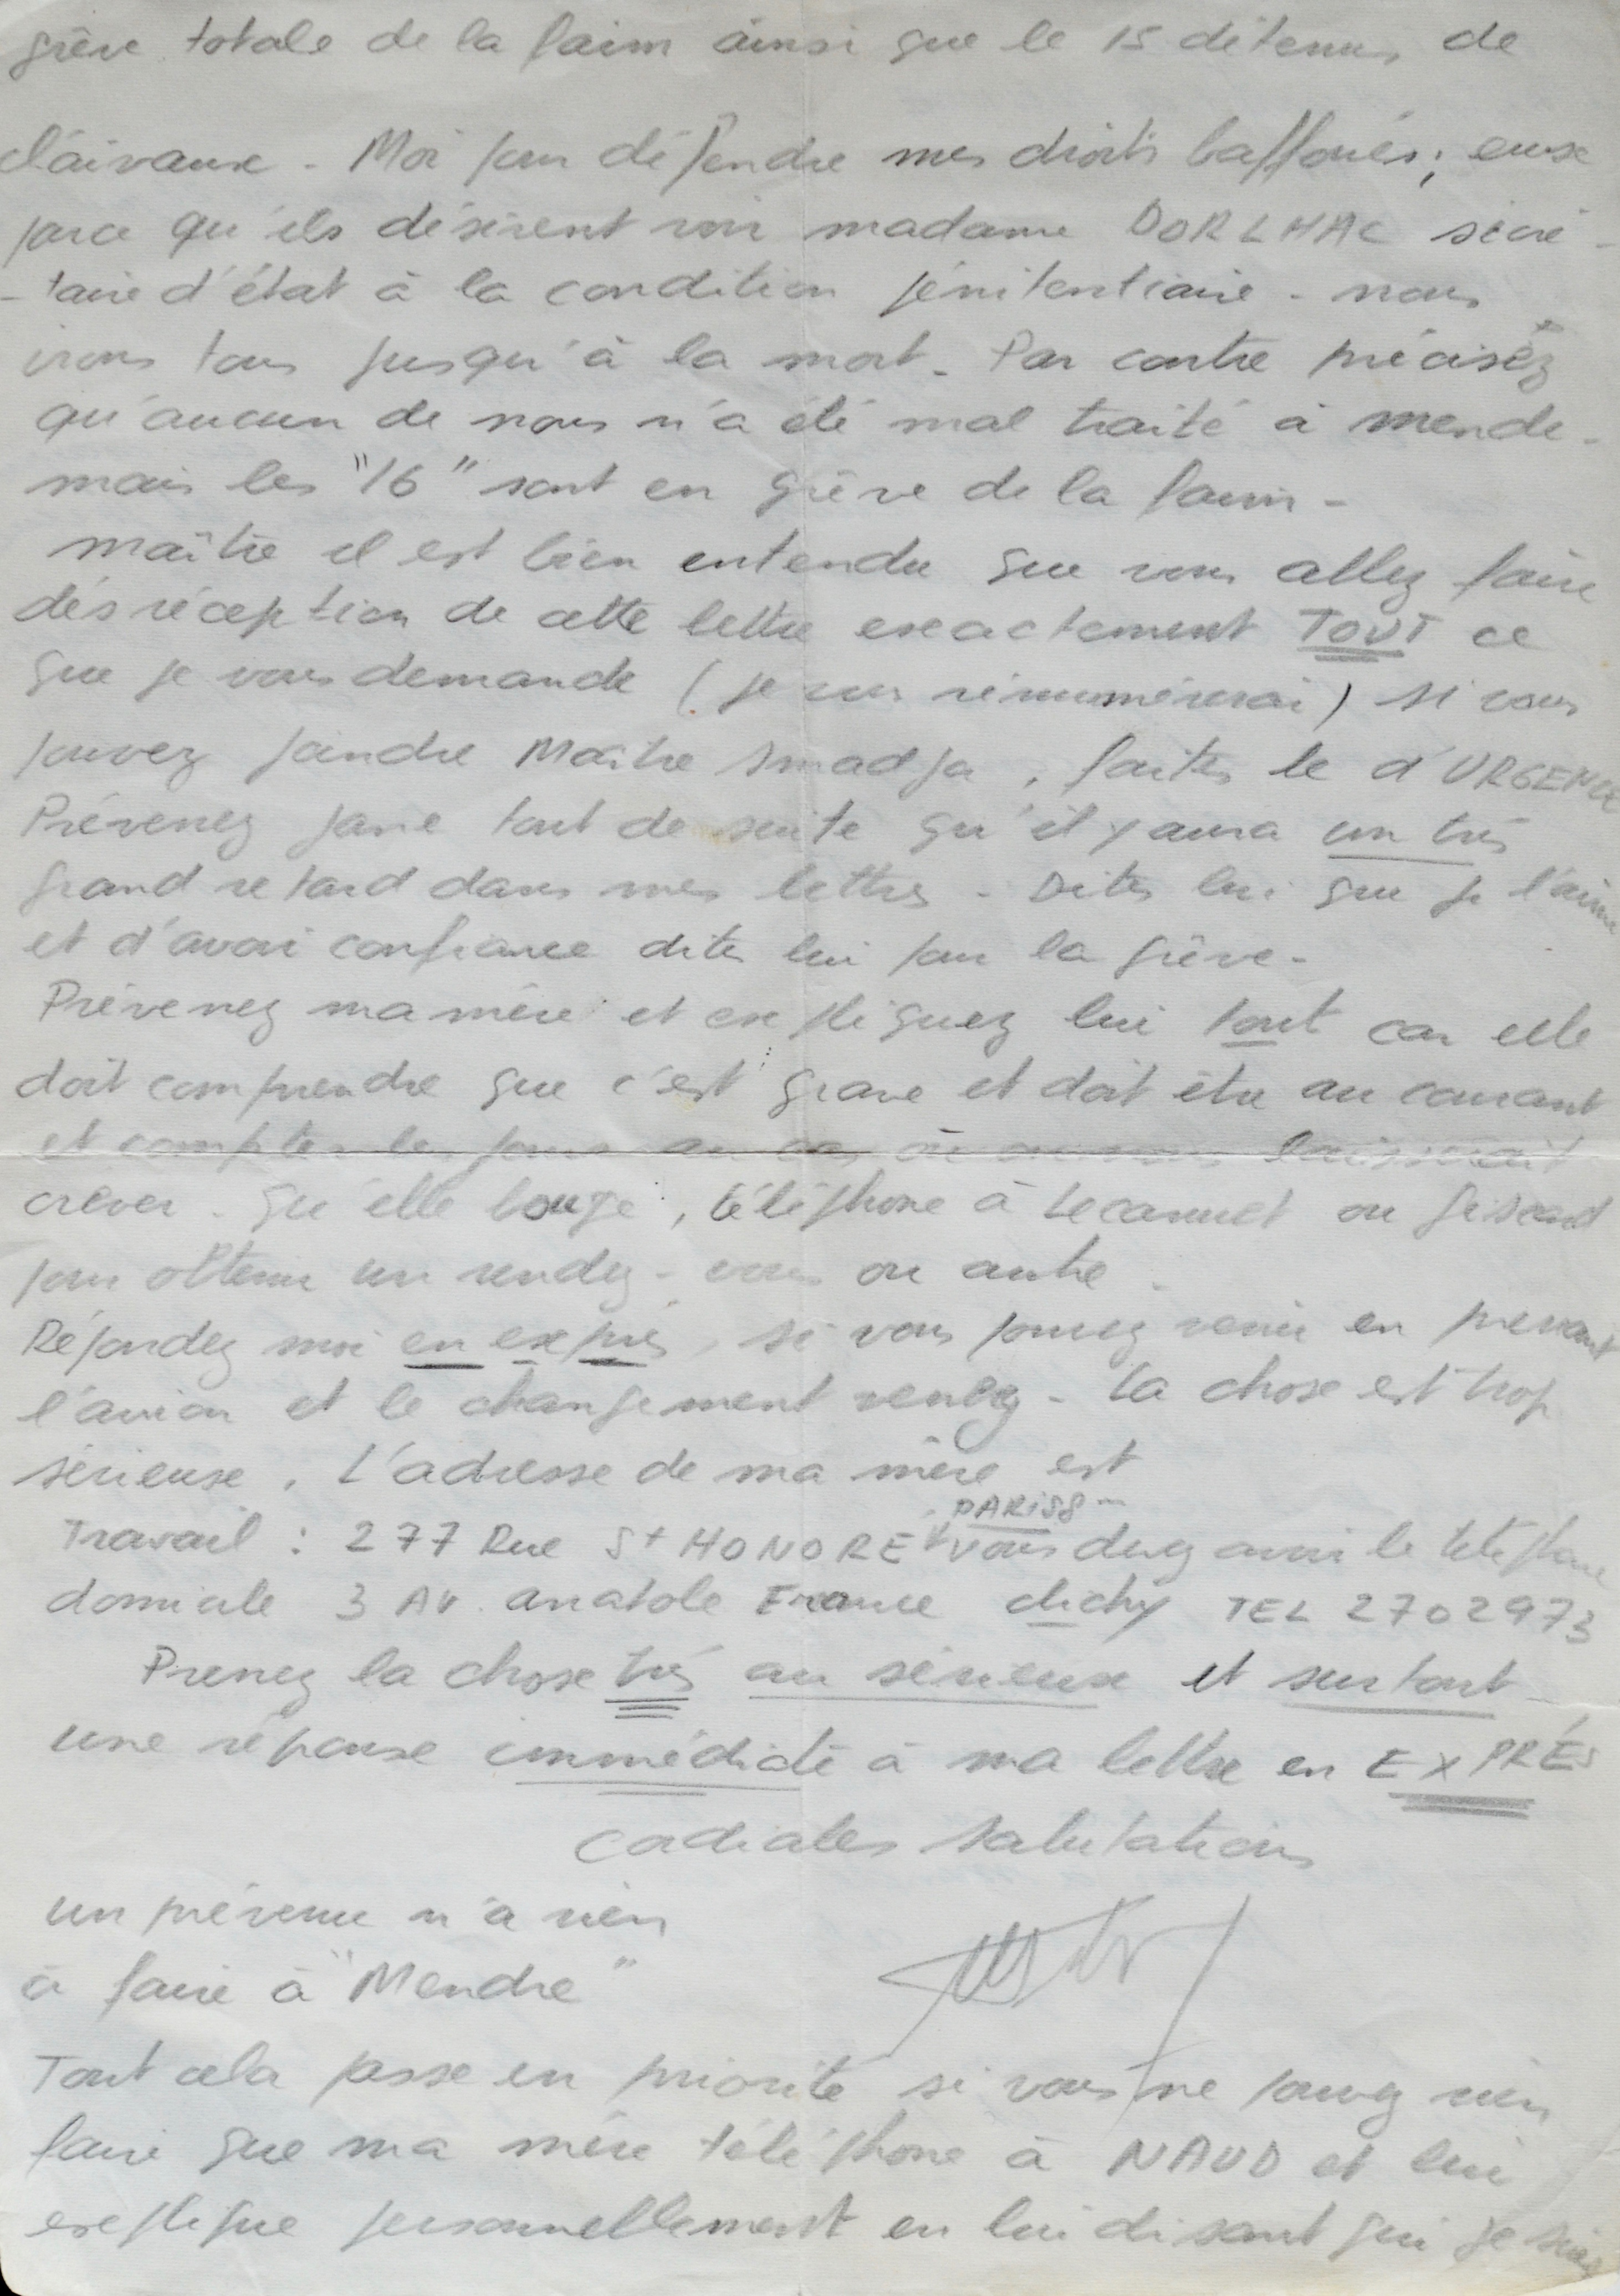 grève totale de la faim ainsi que le 15 détenus de
Clairvaux - Moi pour défendre mes droits baffoués; eux
parce qu'ils désirent voir madame DORLHAC sécré-
-taire d'état à la condition pénitentiaire - nous
irons tous jusqu'à la mort - Par contre précisez
qu'aucun de nous n'a été mal traité à mende -
mais les "16" sont en grève de la faim -
maître il est bien entendu que vous allez faire
dés réception de cette lettre exactement TOUT ce
que je vous demande (je vous rénumérerai) si vous
pouvez joindre Maître Smadja, faites le d'URGENCE
Prévenez Jane tout de suite qu'il y aura un très
grand retard dans mes lettres - Dites lui que je l'aime
et d'avoir confiance dites lui pour la grève -
Prévenez ma mère et expliquez lui tout car elle
doit comprendre que c'est grave et doit être au courant
et compter les jours au cas où on nous laisserait
crever - qu'elle bouge, téléphone à Lecanuet ou giscard
pour obtenir un rendez-vous ou autre -
Répondez moi en exprés, si vous pouvez venir en prenant
l'avion et le changement venez - La chose est trop
sérieuse. L'adresse de ma mère est
PARIS 8 -
Travail : 277 Rue St HONORE vous devez avoir le téléphone
domicile 3 AV. anatole France clichy TEL 2702973
Prenez la chose très au sérieux et surtout
une réponse immédiate à ma lettre en EXPRÉS
cordiales salutations
un prévenu n'a rien
à faire à "Mendre"
Tout cela passe en priorité si vous ne pouvez rien
faire que ma mère téléphone à NAUD et lui
explique personnellement en lui disant qui je suis